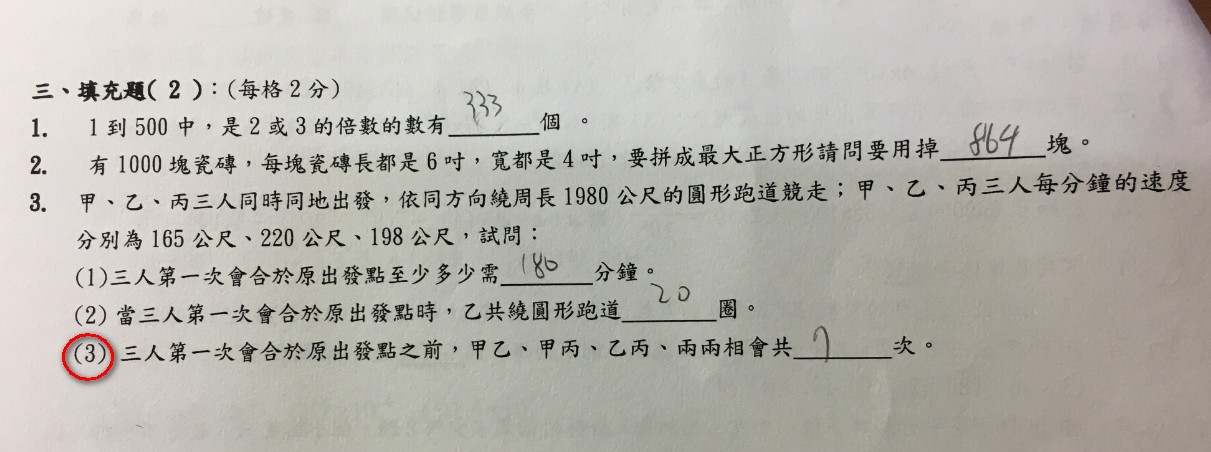 三、填充題( 2 )：(每格 2 分)
1. 1 到 500 中，是 2 或 3 的倍數的數有 333 個 。
2. 有 1000 塊瓷磚，每塊瓷磚長都是 6 吋，寬都是 4 吋，要拼成最大正方形請問要用掉 864 塊。
3. 甲、乙、丙三人同時同地出發，依同方向繞周長 1980 公尺的圓形跑道競走；甲、乙、丙三人每分鐘的速度
分別為 165 公尺、220 公尺、198 公尺，試問：
(1)三人第一次會合於原出發點至少多少需 180 分鐘。
(2) 當三人第一次會合於原出發點時，乙共繞圓形跑道 20 圈。
(3) 三人第一次會合於原出發點之前，甲乙、甲丙、乙丙、兩兩相會共 7 次。